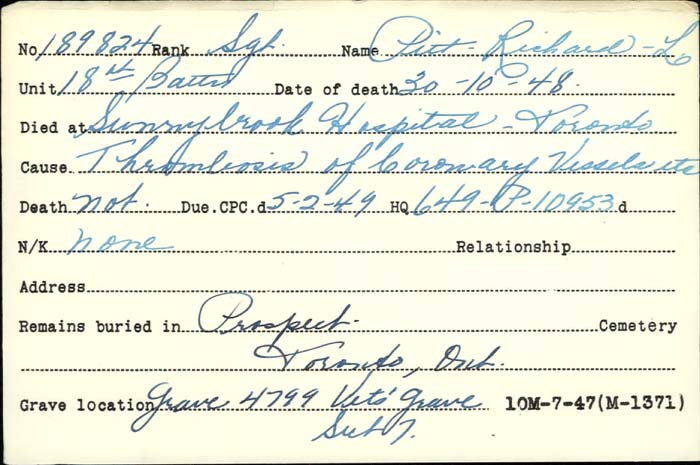 No 189824 Rank Sgt. Name Pitt - Richard - L
Unit 18th Battn Date of death 30 - 10 - 48.
Died at Sunnybrook Hospital - Toronto
Cause Thrombosis of Coronary Vessels etc
Death not. Due.CPC.d 5-2-49 HQ 649-P-10953 d
N/K none Relationship
Address
Remains buried in Prospect. Cemetery
Toronto, Ont.
Grave location Grave 4799 Vets' Grave 10M-7-47(M-1371)
Sect 7.